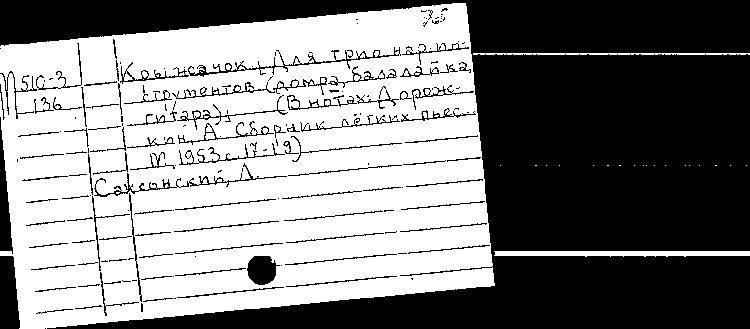 М 510-3
136
Крыжачок. [Для трио нар. ин-
струментов (домра, балалайка,
гитара)]. (В нотах: Дорож-
кин, А. Сборник лёгких пьес.
М, 1953 с. 17-19)
Саксонский, А.